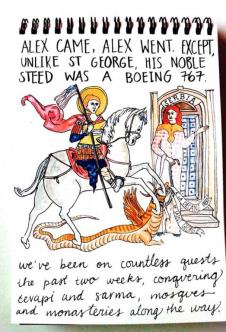 ALEX CAME, ALEX WENT. EXCEPT,
UNLIKE ST GEORGE, HIS NOBLE
STEED WAS A BOEING 767.
we've been on countless quests
the past two weeks, conquering
ćevapi and sarma, mosques
and monasteries along the way!